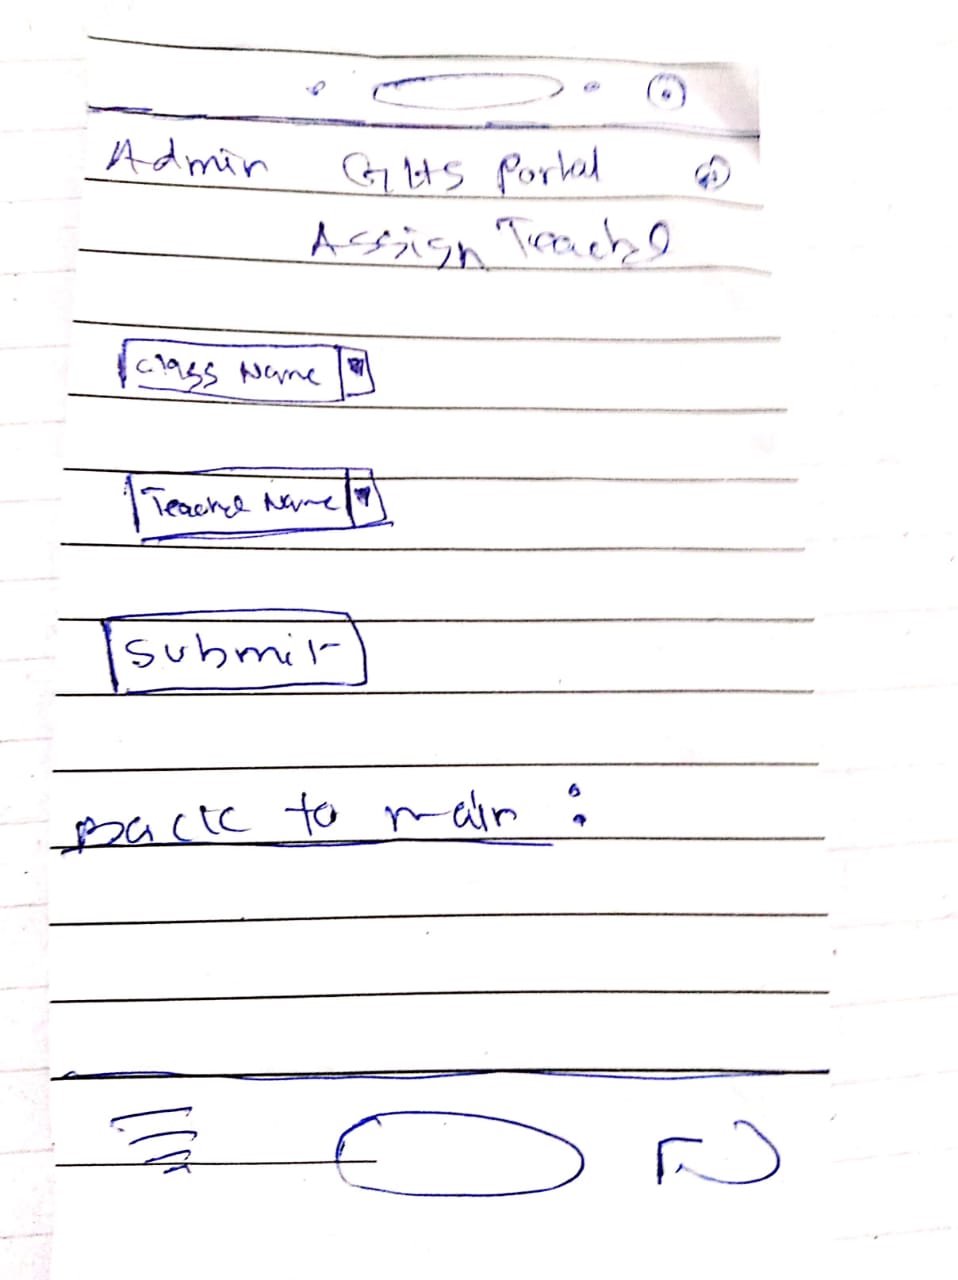 Admin GHS Portal
Assign Teacher
Class Name
Teacher Name
Submit
Back to main :